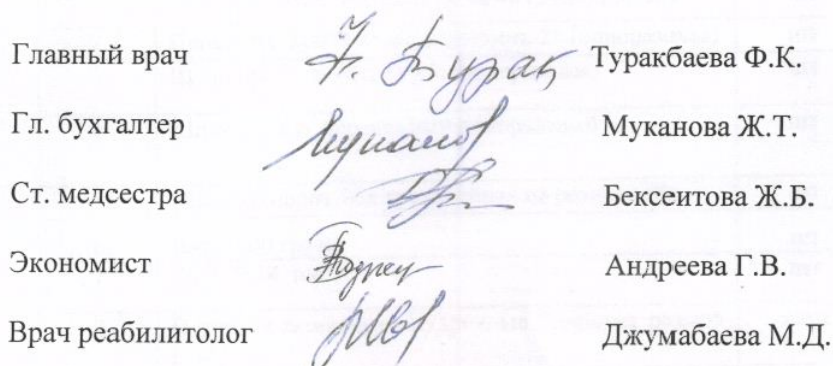 Главный врач Туракбаева Ф.К.
Гл. бухгалтер Муканова Ж.Т.
Ст. медсестра Бексеитова Ж.Б.
Экономист Андреева Г.В.
Врач реабилитолог Джумабаева М.Д.